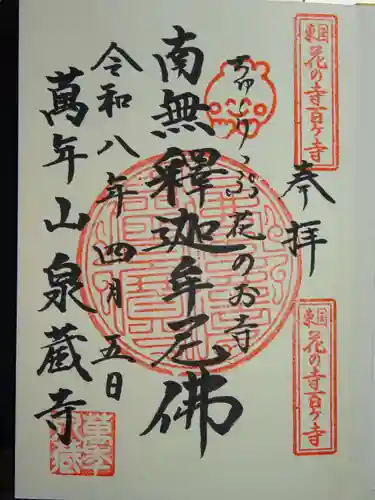 東国花の寺百ヶ寺
東国花の寺百ヶ寺
奉拝
ちゅーりっぷ花のお寺
南無釋迦牟尼佛
令和八年四月五日
萬年山泉蔵寺